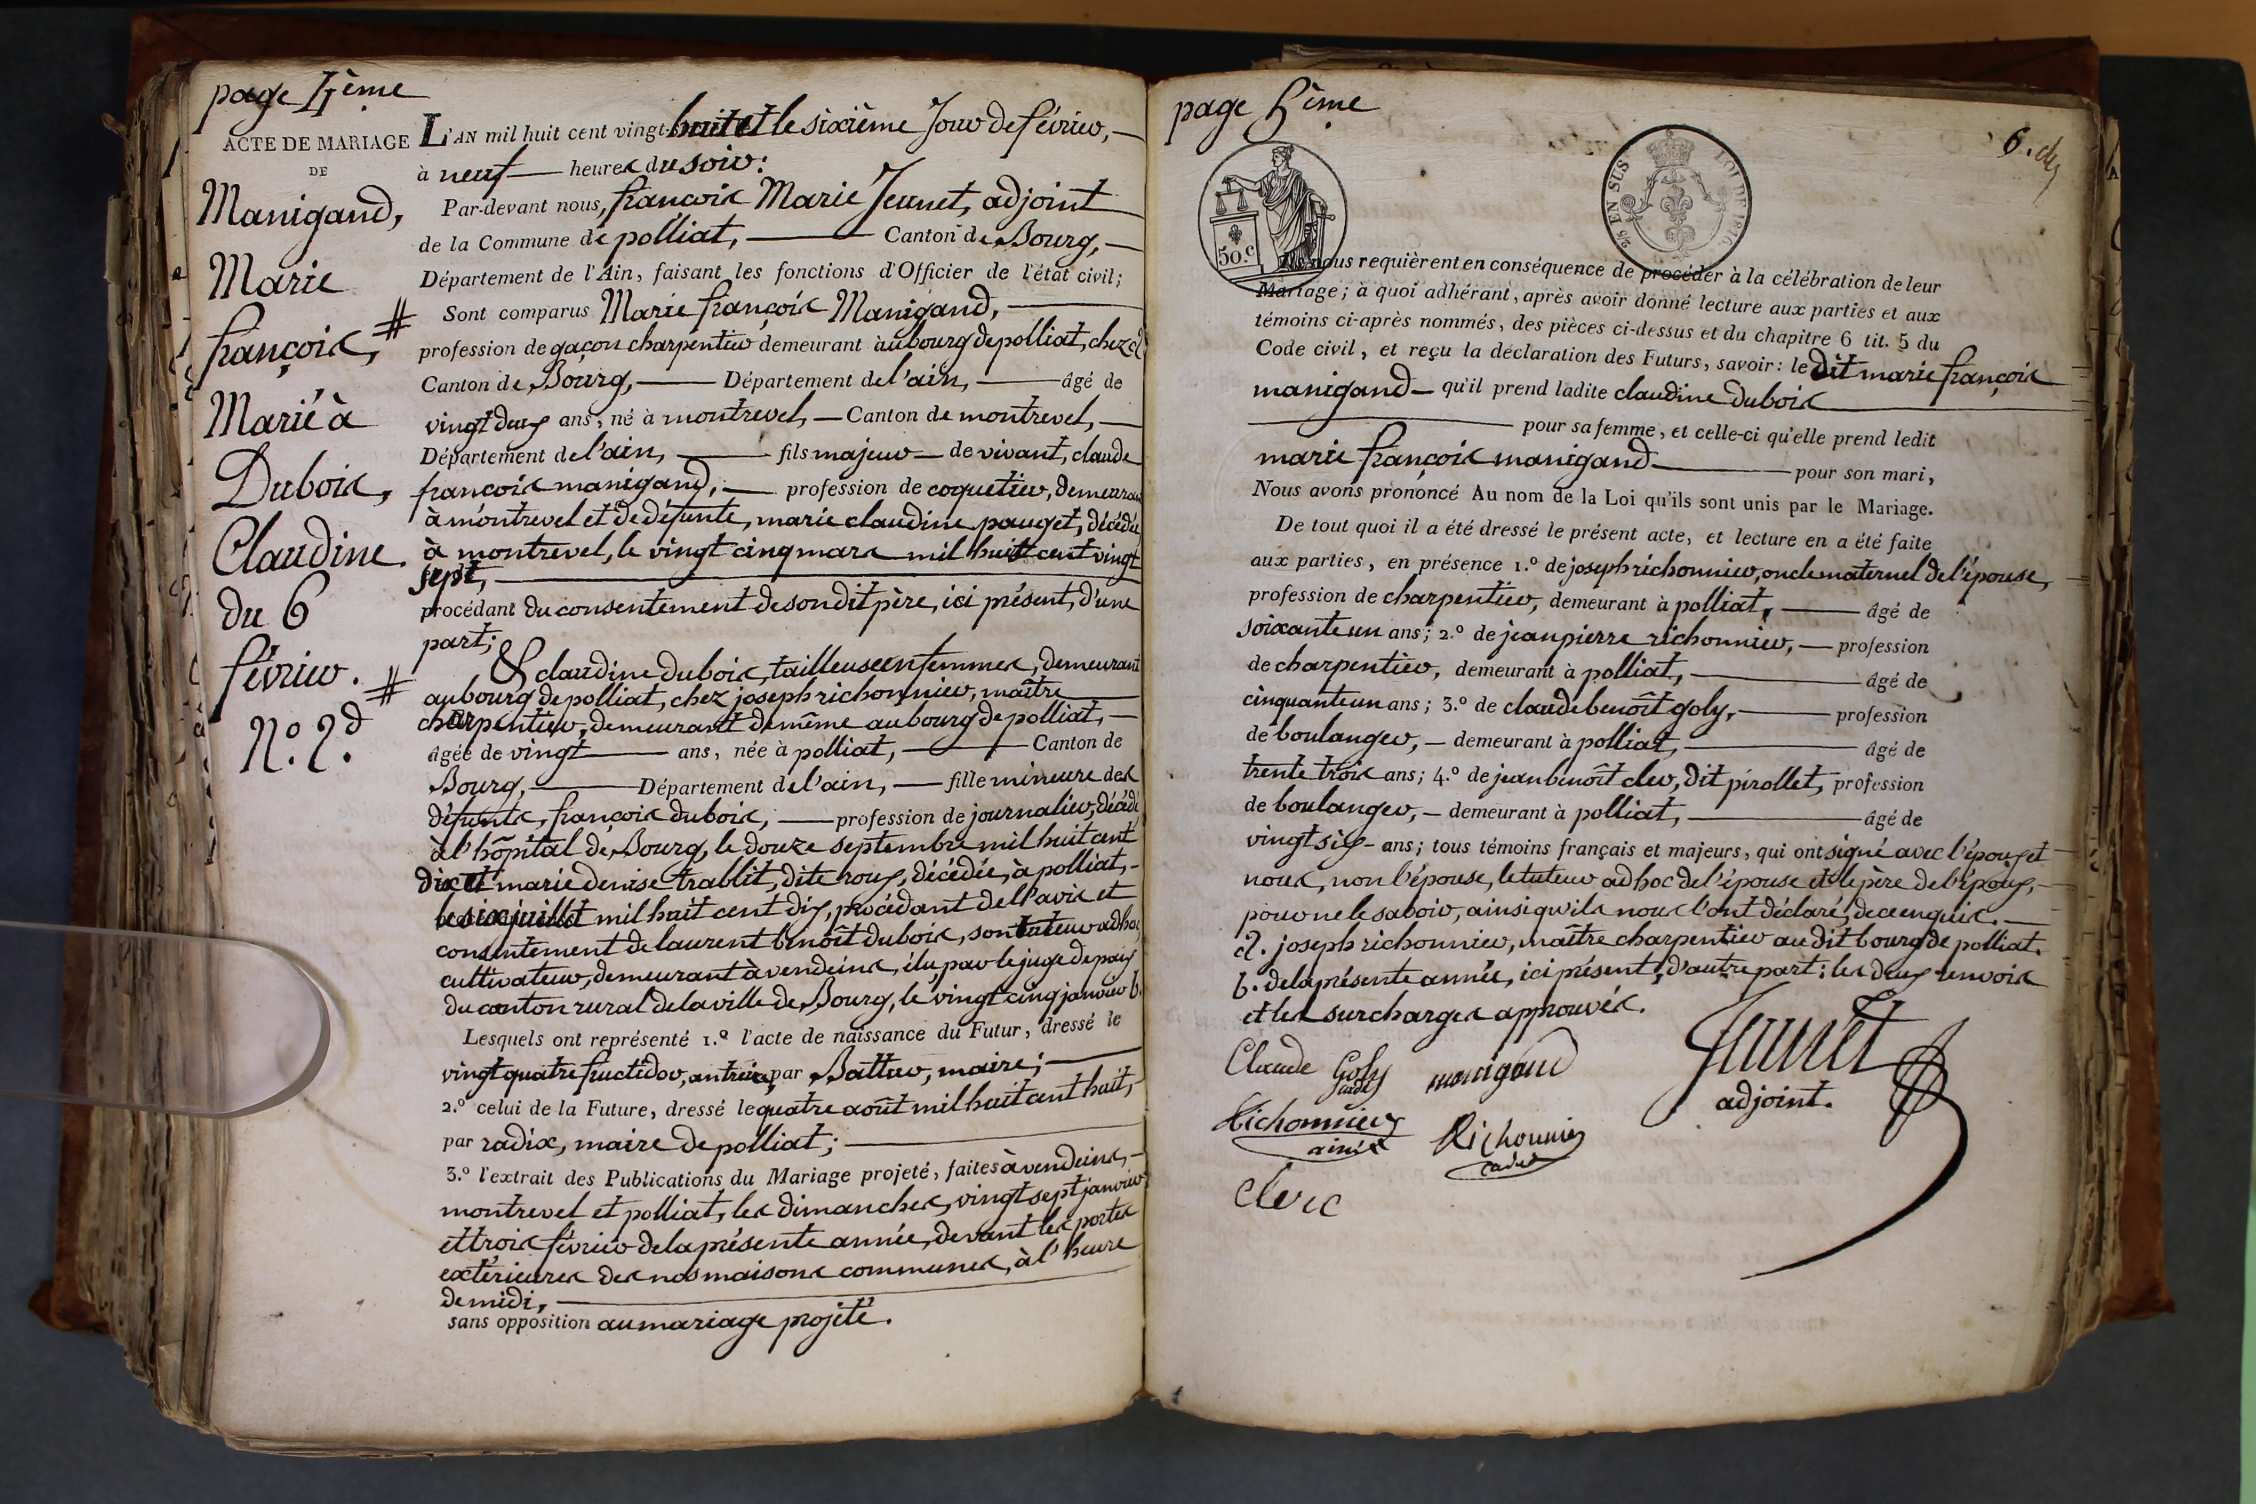 page 4ème
ACTE DE MARIAGE
DE
Manigand,
Marie
françois,
Marié à
Dubois,
Claudine.
du 6
février.
N.º 2.d
L'AN mil huit cent vingt-huit et le sixième Jour de février,
à neuf heures du soir:
Par-devant nous, françois Marie Jeunet, adjoint
de la Commune de polliat, Canton de Bourg,
Département de l'Ain, faisant les fonctions d'Officier de l'état civil;
Sont comparus Marie françois Manigand,
# profession de gaçon charpentier demeurant au bourg de polliat, chez a
Canton de Bourg, Département de l'ain, âgé de
vingt deux ans, né à montrevel, Canton de montrevel,
Département de l'ain, fils majeur de vivant, claude
françois manigand, profession de coquetier, demeurant
à montrevel et de défunte, marie claudine pauget, décédée
à montrevel, le vingt cinq mars mil huit cent vingt
sept,
procédant du consentement de son dit père, ici présent, d'une
part;
& claudine dubois, tailleuse en femmes, demeurant
# au bourg de polliat, chez joseph richonnier, maître
charpentier, demeurant de même au bourg de polliat,
âgée de vingt ans, née à polliat, Canton de
Bourg, Département de l'ain, fille mineure des
défunts, françois dubois, profession de journalier, décédé
à l'hôpital de Bourg, le douze septembre mil huit cent
dix et marie denise trablit, dite roux, décédée, à polliat,
le six juillet mil huit cent dix, procédant de l'avis et
consentement de laurent benoît dubois, son tuteur ad hoc,
cultivateur, demeurant à vendeins, élu par le juge de paix
du canton rural de la ville de Bourg, le vingt cinq janvier b.
Lesquels ont représenté 1.º l'acte de naissance du Futur, dressé le
vingt quatre fructidor, an treize, par Battur, maire;
2.º celui de la Future, dressé le quatre août mil huit cent huit,
par radix, maire de polliat;
3.º l'extrait des Publications du Mariage projeté, faites à vendeins,
montrevel et polliat, les dimanches, vingt sept janvier
et trois février de la présente année, devant les portes
extérieures des nos maisons communes, à l'heure
de midi,
sans opposition au mariage projeté.
page 5ème
6.
50.c
2/5 EN SUS
LOI DE 1816
Ils nous requièrent en conséquence de procéder à la célébration de leur
Mariage; à quoi adhérant, après avoir donné lecture aux parties et aux
témoins ci-après nommés, des pièces ci-dessus et du chapitre 6 tit. 5 du
Code civil, et reçu la déclaration des Futurs, savoir: le dit marie françois
manigand qu'il prend ladite claudine dubois
pour sa femme, et celle-ci qu'elle prend ledit
marie françois manigand pour son mari,
Nous avons prononcé Au nom de la Loi qu'ils sont unis par le Mariage.
De tout quoi il a été dressé le présent acte, et lecture en a été faite
aux parties, en présence 1.º de joseph richonnier, oncle maternel de l'épouse,
profession de charpentier, demeurant à polliat, âgé de
soixante un ans; 2.º de jean pierre richonnier, profession
de charpentier, demeurant à polliat, âgé de
cinquante un ans; 3.º de claude benoît goly, profession
de boulanger, demeurant à polliat, âgé de
trente trois ans; 4.º de jean benoît cler, dit pirollet, profession
de boulanger, demeurant à polliat, âgé de
vingt six ans; tous témoins français et majeurs, qui ont signé avec l'époux et
nous, non l'épouse, le tuteur ad hoc de l'épouse et le père de l'époux,
pour ne le savoir, ainsi qu'ils nous l'ont déclaré, de ce enquis.
a. joseph richonnier, maître charpentier au dit bourg de polliat.
b. de la présente année, ici présent, d'autre part: les deux renvois
et les surcharges approuvés.
Claude Goly manigand Jeunet
cadet
adjoint.
Richonnier Richonnier
ainé cadet
clerc